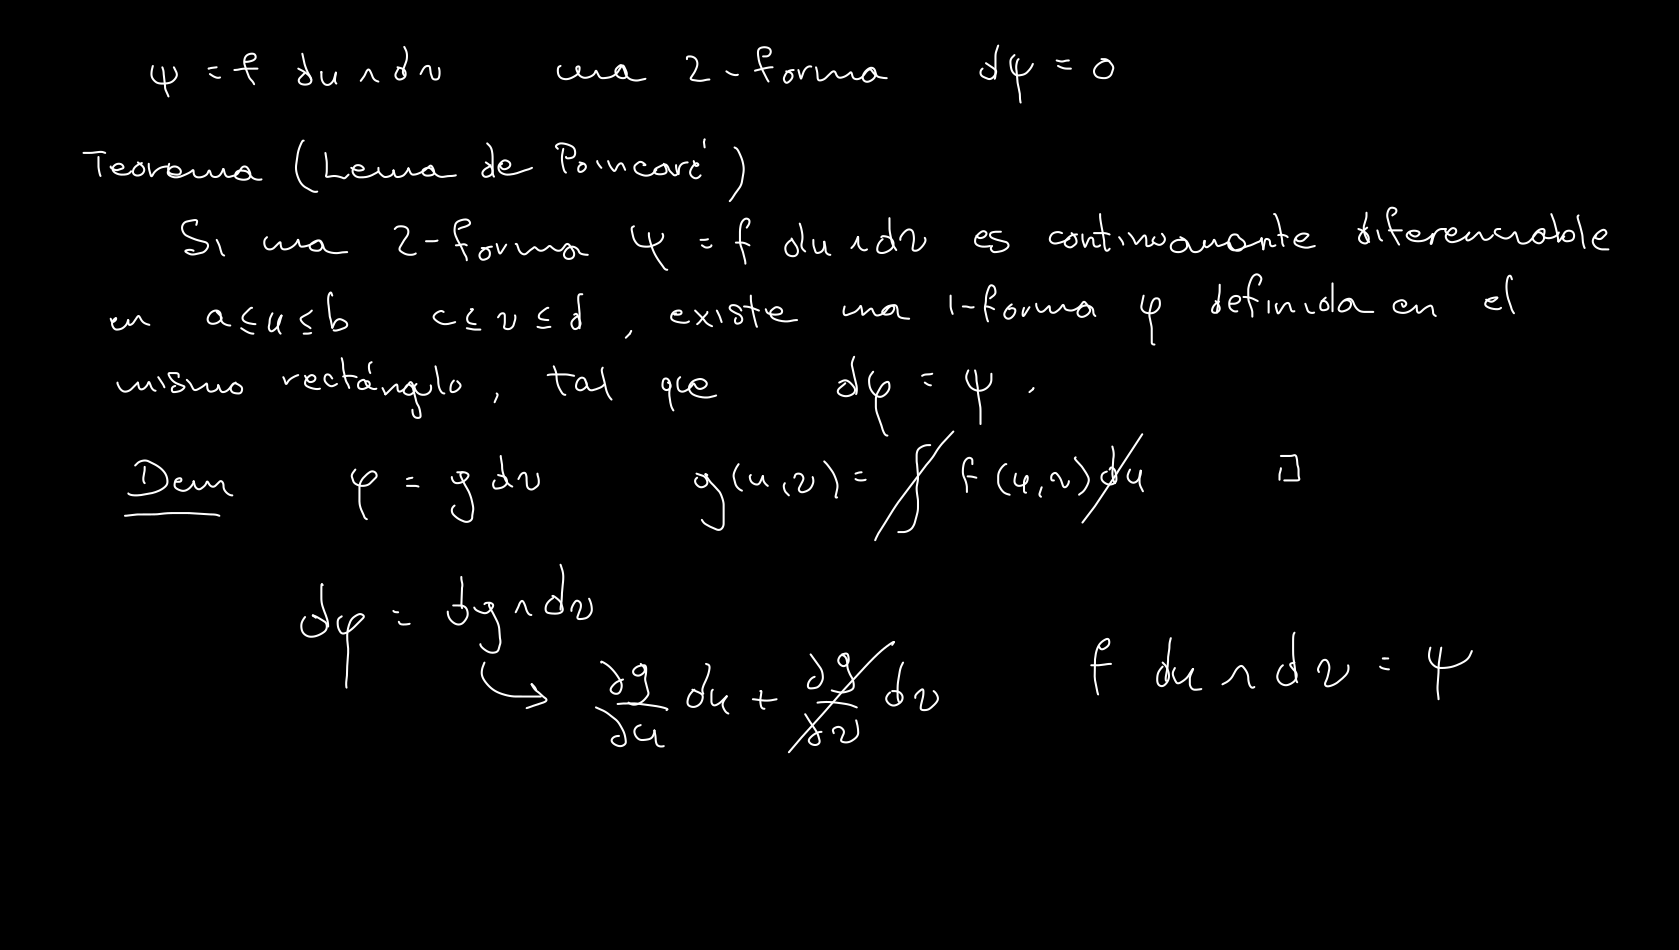 ψ = f du ∧ dv una 2-forma dψ = 0
Teorema (Lema de Poincaré)
Si una 2-forma ψ = f du ∧ dv es continuamente diferenciable
en a ≤ u ≤ b c ≤ v ≤ d, existe una 1-forma φ definida en el
mismo rectángulo, tal que dφ = ψ.
Dem φ = g dv g(u,v) = ∫ f(u,v) du □
dφ = dg ∧ dv
→ ∂g/∂u du + ∂g/∂v dv f du ∧ dv = ψ